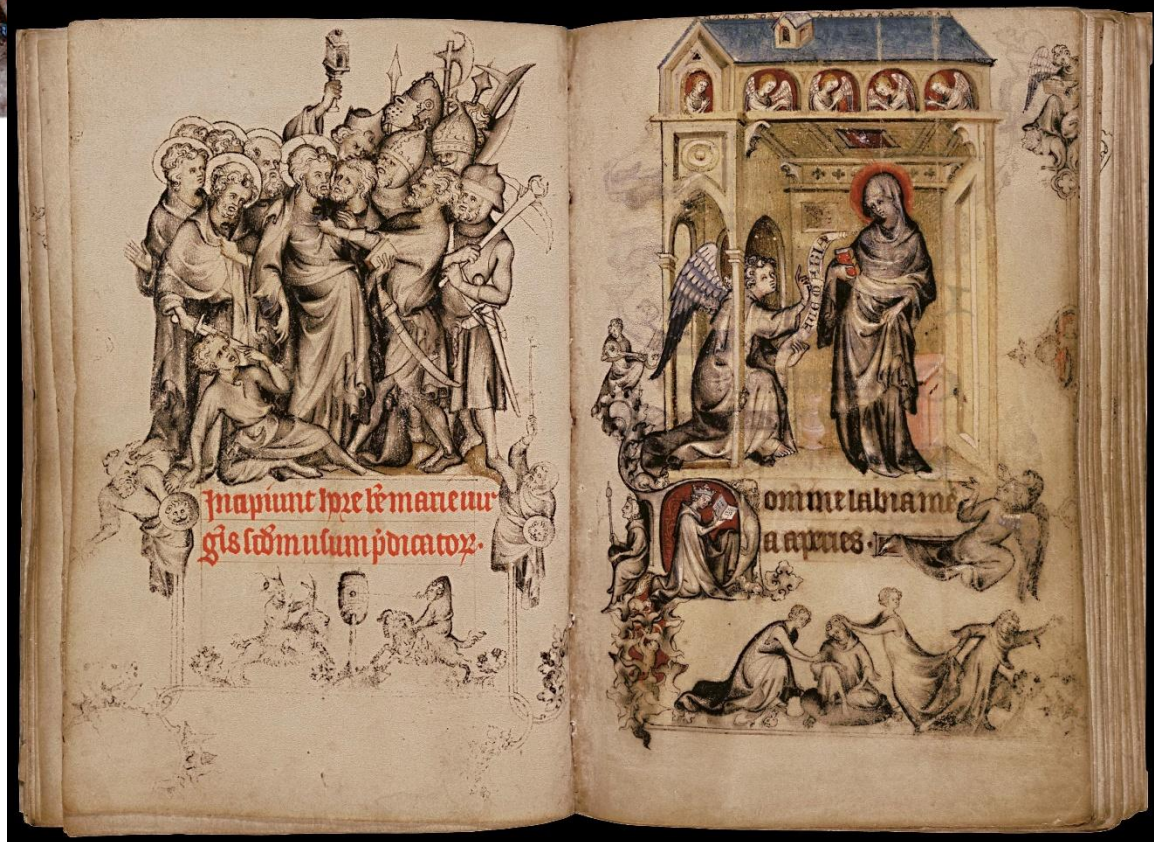 Incipiunt hore be᷑ marie uir
gıs scd̄m usum p̄dicatoꝝ·
aue maria
Domine labia me
a aperies·